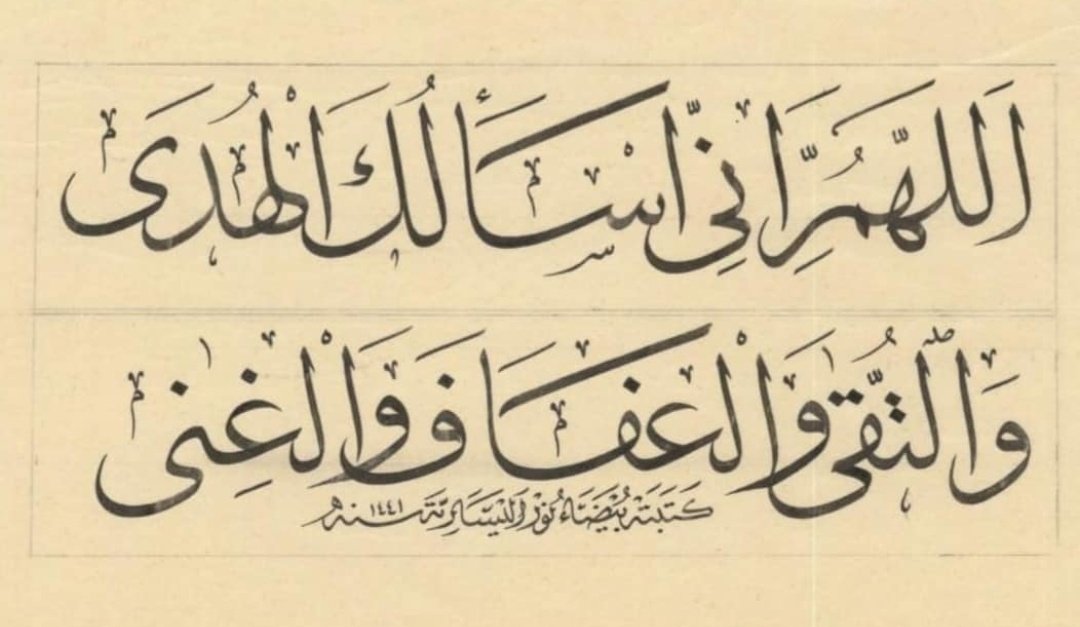 اَللّهُمَّ اِنِّى اَسْأَلُكَ الْهُدَى
وَالتُّقَى وَالْعَفَافَ وَالْغِنَى
كَتَبَتْهُ بَيْضَاءُ نُوْرُ سنه ١٤٤١